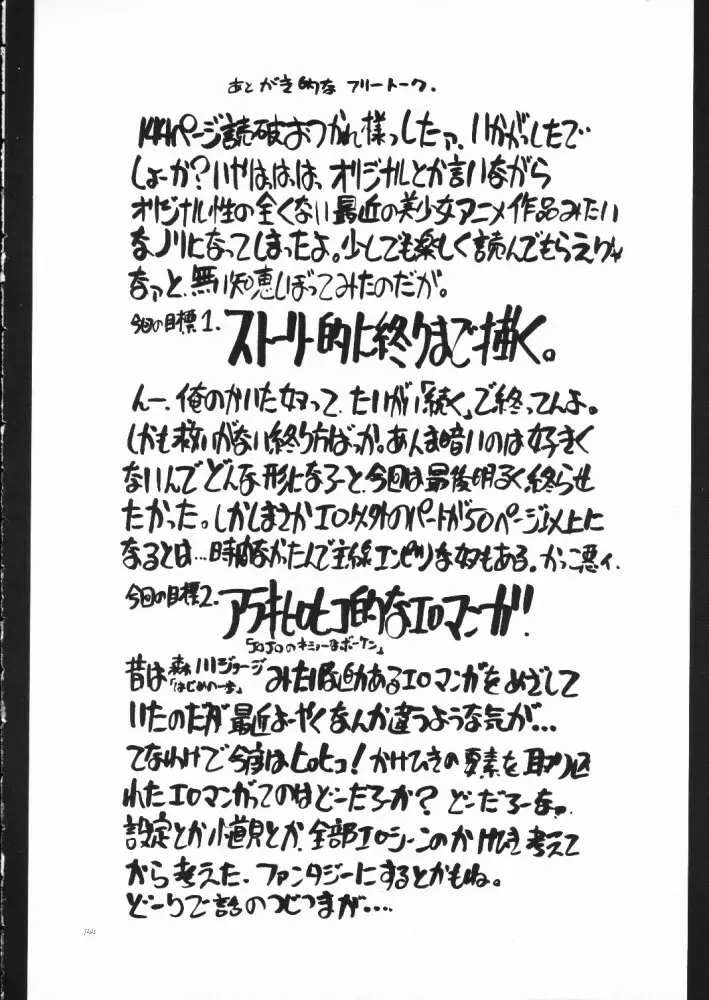 あとがき的な フリートーク.
144ページ読破おつかれ様っしたァ、いかがっしたで
しょーか？いやはっはっはっ、オリジナルとか言いながら
オリジナル性の全くない最近の美少女アニメ作品みたい
なノリになってしまったよ。少しでも楽しく読んでもらえりゃ
なァっと、無い知恵しぼってみたのだが。
今回の目標1. ストーリー的に終りまで描く。
んー、俺のかいた奴って、たいがい「続く」で終ってんよ。
しかも救いがない終り方ばっか。あんま暗いのは好きく
ないんでどんな形になろーと、今回は最後明るく終らせ
たかった。しかしまさかエロ以外のパートが50ページ以上に
なるとは…時間なかったんで主線エンピツな奴もある。かっこ悪ィ.
今回の目標2. アラキヒロヒコ的なエロマンガ!
「JoJoのキミョーなボーケン」
昔は森川ジョージみたいな迫力あるエロマンガをめざして
「はじめの一歩」
いたのだが最近よーやくなんか違うような気が…
てなわけで今度はヒロヒコ！かけひきの要素を取り込
れたエロマンガってのはどーだろーか？どーだろーなァ.
設定とか小道具とか、全部エロシーンのかけひき考えて
から考えた、ファンタジーにするとかもね。
どーりで話のつじつまが….
144